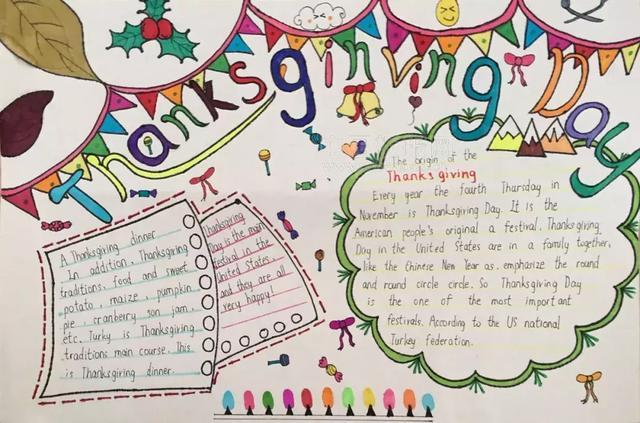 Thanksgiving Day
A Thanksgiving dinner
In addition, Thanksgiving
traditions, food and sweet
potato, maize, pumpkin
pie, cranberry son jam,
etc. Turky is Thanksgiving
traditions main course. This
is Thanksgiving dinner.
Thanksgiving
Day is the main
festival in the
United States,
and they are all
very happy!
The origin of the
Thanks giving
Every year the fourth Thursday in
November is Thanksgiving Day. It is the
American people's original a festival, Thanksgiving
Day in the United States are in a family together,
like the Chinese New Year as, emphasize the round
and round circle circle. So Thanksgiving Day
is the one of the most important
festivals. According to the US national
Turkey federation.